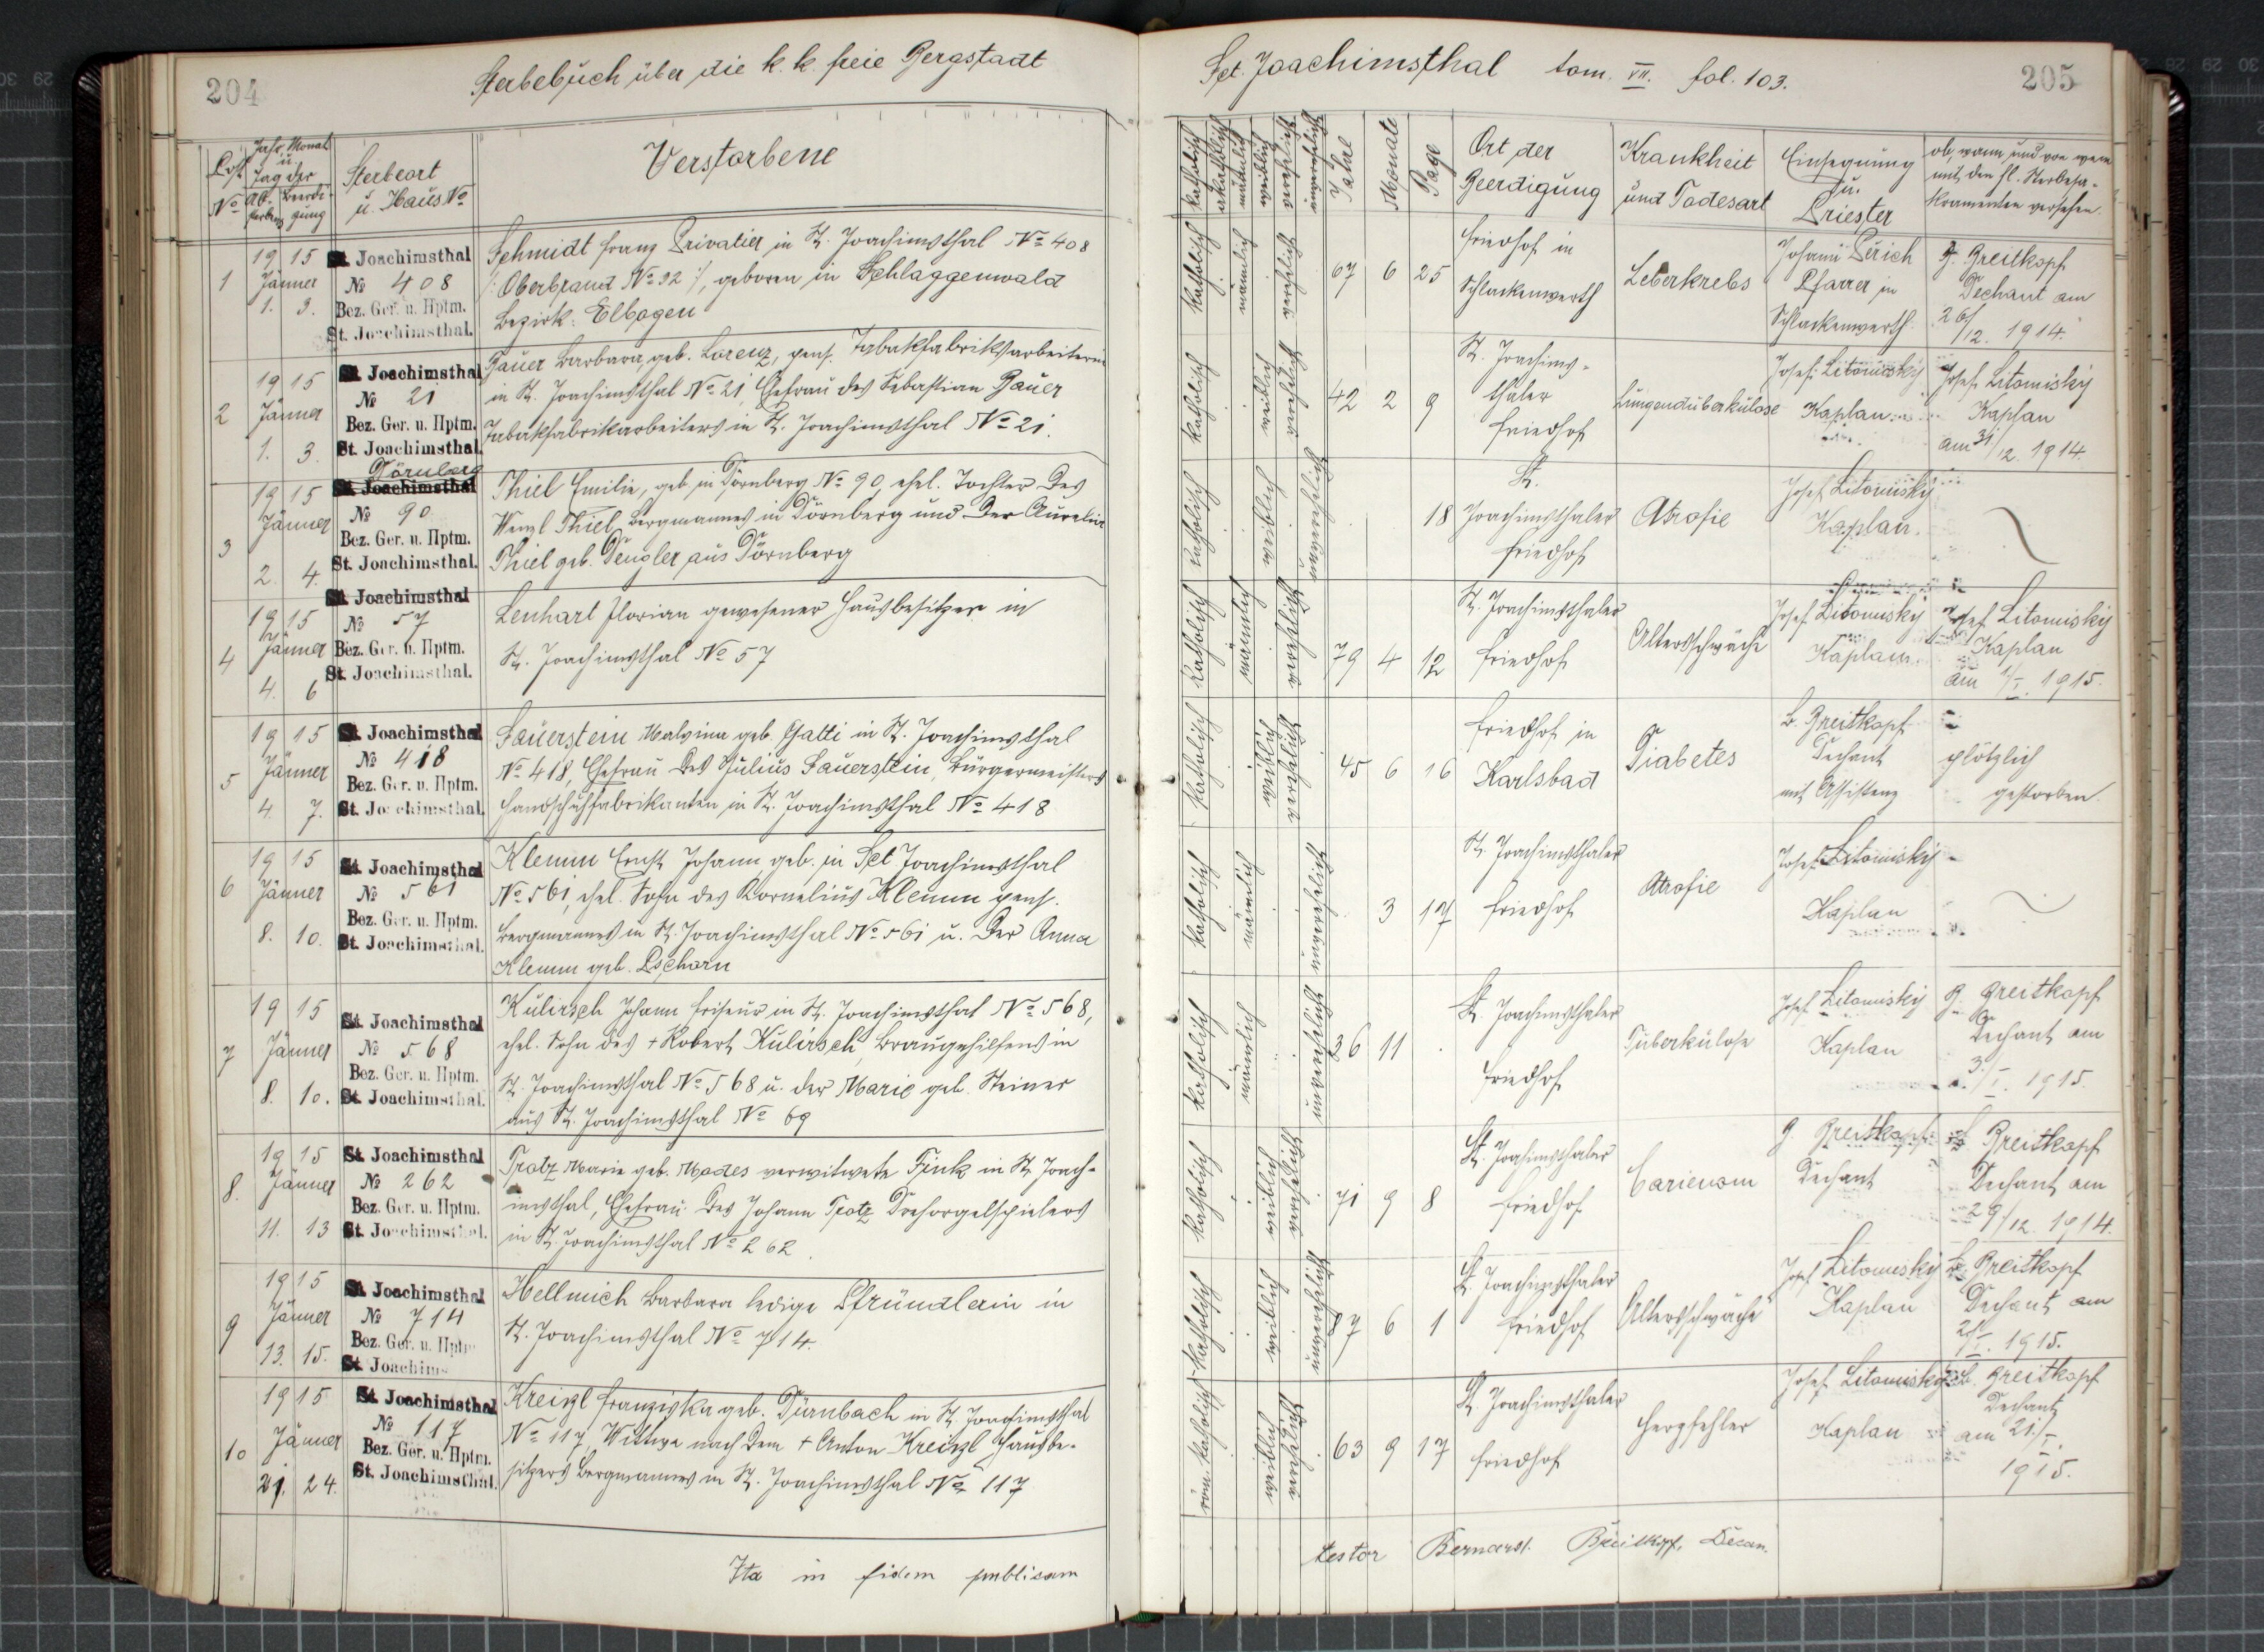 204
Sterbebuch über die k. k. freie Bergstadt
Post
No
Jahr, Monat
u.
Tag der
Ab-
sterbens
Beerdi-
gung
Sterbeort
u. Haus No
Verstorbene
1
1915
Jänner
1. 3.
St. Joachimsthal
No 408
Bez. Ger. u. Hptm.
St. Joachimsthal.
Schmidt Franz Privatier in St. Joachimsthal No 408
/: Oberbrand No 32 :/, geboren in Schlaggenwald
Bezirk: Elbogen
2
1915
Jänner
1. 3.
St. Joachimsthal
No 21
Bez. Ger. u. Hptm.
St. Joachimsthal.
Bauer Barbara, geb. Lorenz, pens. Tabakfabriksarbeiterin
in St. Joachimsthal No 21, Ehefrau des Sebastian Bauer
Tabakfabrikarbeiters in St. Joachimsthal No 21.
3
1915
Jänner
2. 4.
Dörnberg
St. Joachimsthal
No 90
Bez. Ger. u. Hptm.
St. Joachimsthal.
Thiel Emilie, geb. in Dörnberg No 90, ehel. Tochter des
Wenzl Thiel, Bergmannes in Dörnberg und der Aurelia
Thiel geb. Dengler aus Dörnberg
4
1915
Jänner
4. 6
St. Joachimsthal
No 57
Bez. Ger. u. Hptm.
St. Joachimsthal.
Lenhart Florian gewesener Hausbesitzer in
St. Joachimsthal No 57
5
1915
Jänner
4. 7.
St. Joachimsthal
No 418
Bez. Ger. u. Hptm.
St. Joachimsthal.
Sauerstein Malvina geb. Gatti in St. Joachimsthal
No 418, Ehefrau des Julius Sauerstein, Bürgermeisters
Handschuhfabrikanten in St. Joachimsthal No 418
6
1915
Jänner
8. 10.
St. Joachimsthal
No 561
Bez. Ger. u. Hptm.
St. Joachimsthal.
Klemm Ernst Johann, geb. in Sct Joachimsthal
No 561, ehel. Sohn des Kornelius Klemm pens.
Bergmannes in St. Joachimsthal No 561 u. der Anna
Klemm geb.
7
1915
Jänner
8. 10.
St. Joachimsthal
No 568
Bez. Ger. u. Hptm.
St. Joachimsthal.
Kulirsch Johann Friseur in St. Joachimsthal No 568,
ehel. Sohn des + Robert Kulirsch, Braugehilfens in
St. Joachimsthal No 568 u. der Marie geb. Steiner
aus St. Joachimsthal No 69
8.
1915
Jänner
11. 13
St. Joachimsthal
No 262
Bez. Ger. u. Hptm.
St. Joachimsthal.
Trotz Marie geb. Modes verwitwete Fink in St. Joach-
imsthal, Ehefrau des Johann Trotz Drehorgelspielers
in St. Joachimsthal No 262.
9
1915
Jänner
13. 15.
St. Joachimsthal
No 714
Bez. Ger. u. Hptm
St. Joachims
Hellmich Barbara ledige Pfründlerin in
St. Joachimsthal No 714.
10
1915
Jänner
21. 24.
St. Joachimsthal
No 117
Bez. Ger. u. Hptm.
St. Joachimsthal.
Kreißl Franziska geb. Dürnbach in St. Joachimsthal
No 117, Wittwe nach dem + Anton Kreißl Hausbe-
sitzers Bergmannes in St. Joachimsthal No 117
Ita in fidem publicam
Sct. Joachimsthal tom. VII. fol. 103.
205
katholisch
akatholisch
männlich
weiblich
verehelicht
unverehelicht
Jahre
Monate
Tage
Ort der
Beerdigung
Krankheit
und Todesart
Einsegnung
u.
Priester
ob, wann, und von wem
mit den hl. Sterbesa-
kramenten versehen.
katholisch
männlich
verehelicht
67 6 25
Friedhof in
Schlackenwerth
Leberkrebs
Johann
Pfarrer in
Schlackenwerth
B. Breitkopf
Dechant am
26/12. 1914.
katholisch
weiblich
verehelicht
42 2 9
St. Joachims-
thaler
Friedhof
Lungentuberkulose
Josef Litomisky
Kaplan
Josef Litomisky
Kaplan
am 31/12. 1914.
katholisch
weiblich
unverehelicht
18
St.
Joachimsthaler
Friedhof
Atrofie
Josef Litomisky
Kaplan.
katholisch
männlich
verehelicht
79 4 12
St. Joachimsthaler
Friedhof
Altersschwäche
Josef Litomisky
Kaplan
Josef Litomisky
Kaplan
am 1/I. 1915.
katholisch
weiblich
verehelicht
45 6 16
Friedhof in
Karlsbad
Diabetes
B. Breitkopf
Dechant
mit Assistenz
plötzlich
gestorben.
katholisch
männlich
unverehelicht
3 17
St. Joachimsthaler
Friedhof
Atrofie
Josef Litomisky
Kaplan
katholisch
männlich
unverehelicht
36 11
St. Joachimsthaler
Friedhof
Tuberkulose
Josef Litomisky
Kaplan
B. Breitkopf
Dechant am
3./I. 1915.
katholisch
weiblich
verehelicht
71 9 8
St. Joachimsthaler
Friedhof
Carienom
B. Breitkopf
Dechant
B. Breitkopf
Dechant am
29/12. 1914.
katholisch
weiblich
unverehelicht
87 6 1
St. Joachimsthaler
Friedhof
Altersschwäche
Josef Litomisky
Kaplan
B. Breitkopf
Dechant am
2/I. 1915.
röm. katholisch
weiblich
verehelicht
63 9 17
St. Joachimsthaler
Friedhof
Herzfehler
Josef Litomisky
Kaplan
B. Breitkopf
Dechant
am 21./I.
1915.
testor Bernard. Breitkopf, Decan.